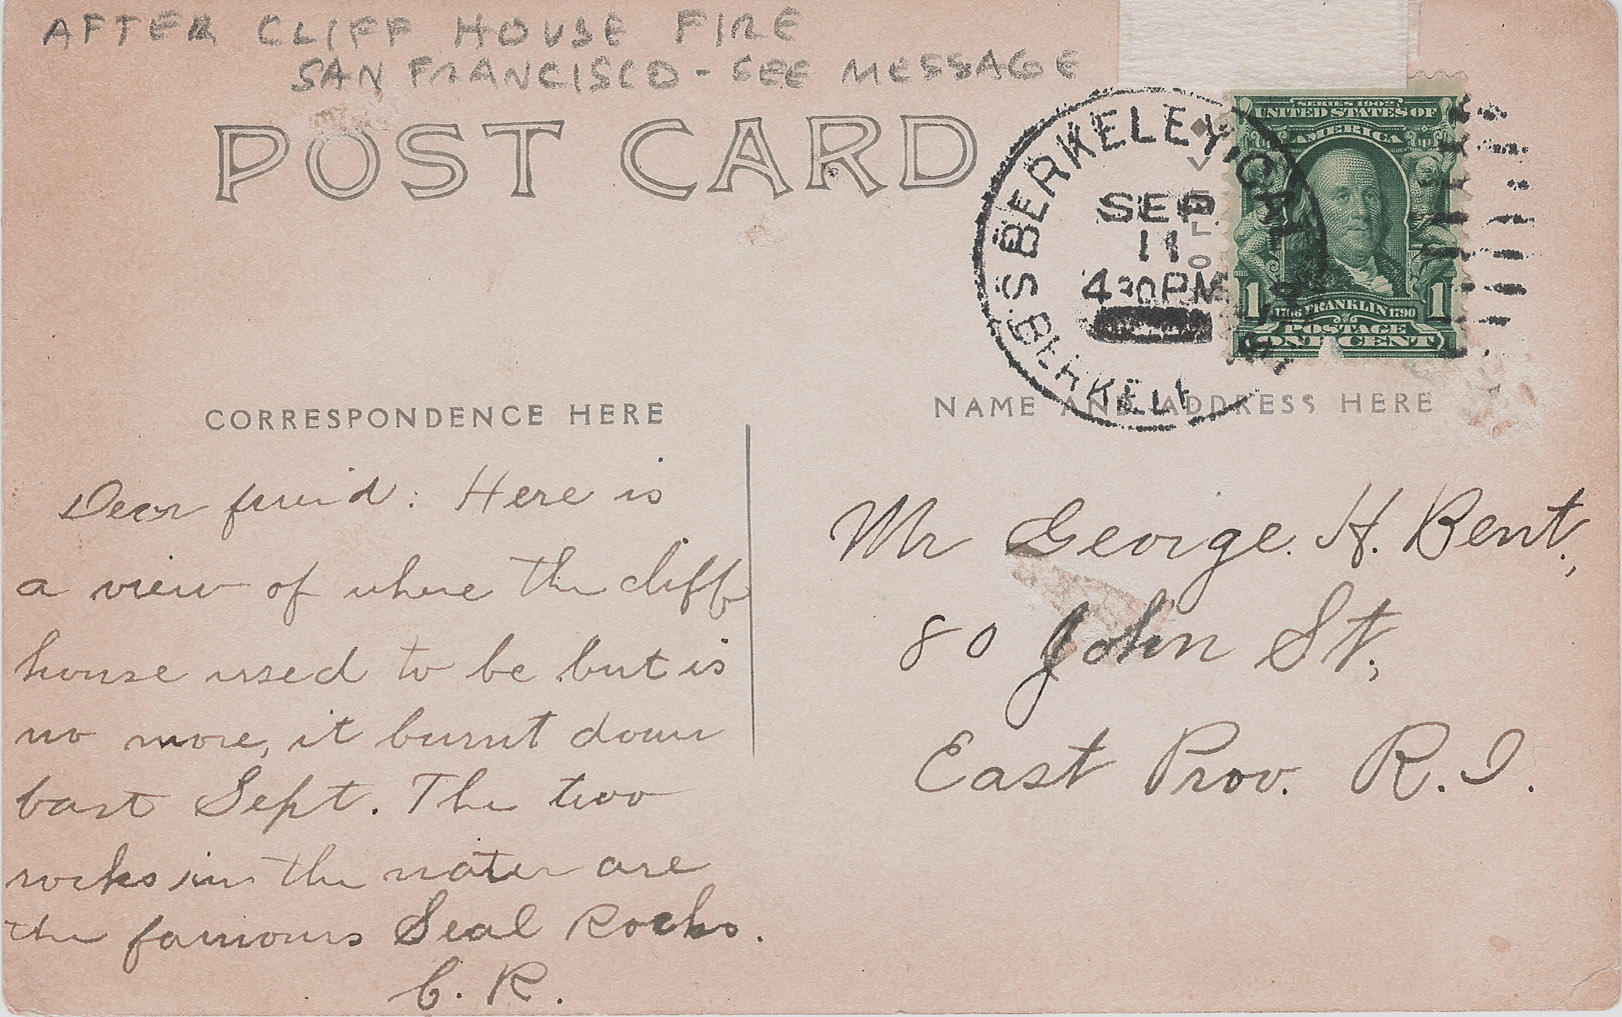 AFTER CLIFF HOUSE FIRE
SAN FRANCISCO - SEE MESSAGE
POST CARD
BERKELEY, CAL.
SEP
11
4 30 PM
S. BERKELEY
VELO
SERIES 1902
UNITED STATES OF
AMERICA
1 1766 FRANKLIN 1790 1
POSTAGE
ONE CENT
CORRESPONDENCE HERE
NAME AND ADDRESS HERE
Dear friend: Here is
a view of where the cliff
house used to be but is
no more, it burnt down
last Sept. The two
rocks in the water are
the famous Seal Rocks.
C. R.
Mr George. H. Bent,
80 John St,
East Prov. R.I.